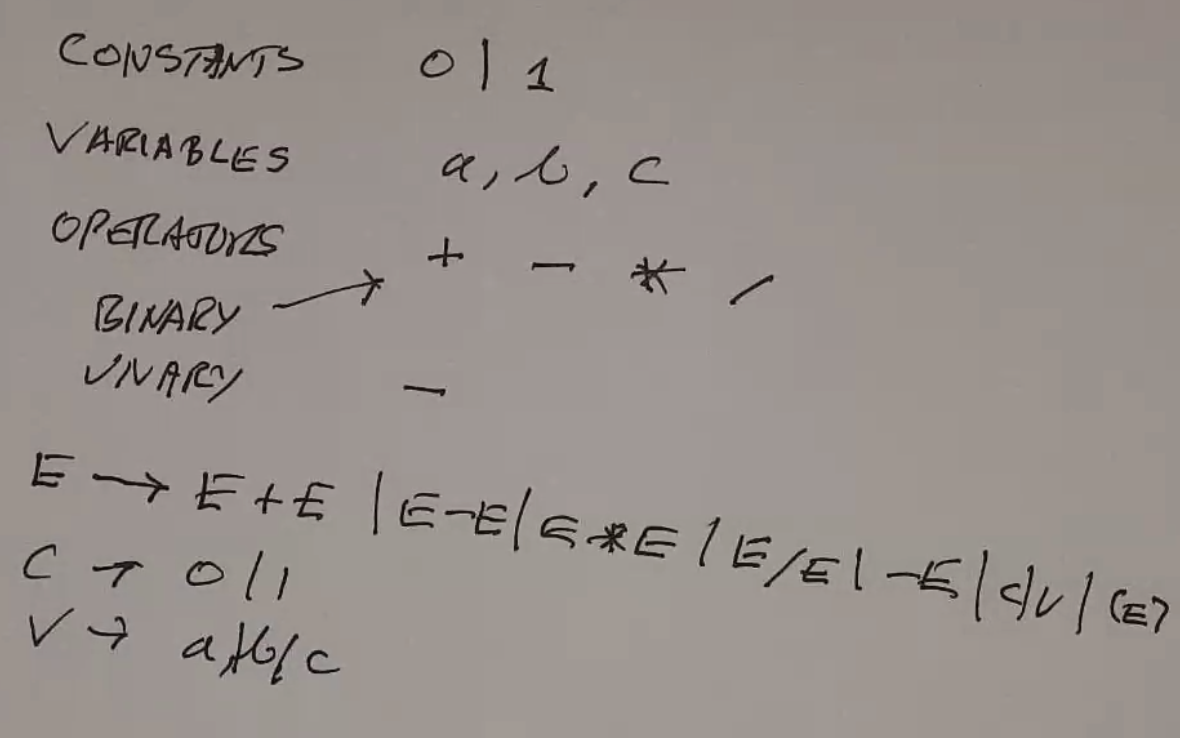 CONSTANTS 0 | 1
VARIABLES a, b, c
OPERATORS + - * /
BINARY →
UNARY -
E → E+E | E-E | E*E | E/E | -E | C | V | (E)
C → 0 | 1
V → a | b | c